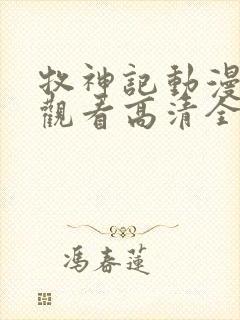 牧神記動漫
觀看高清全
馮春蓮